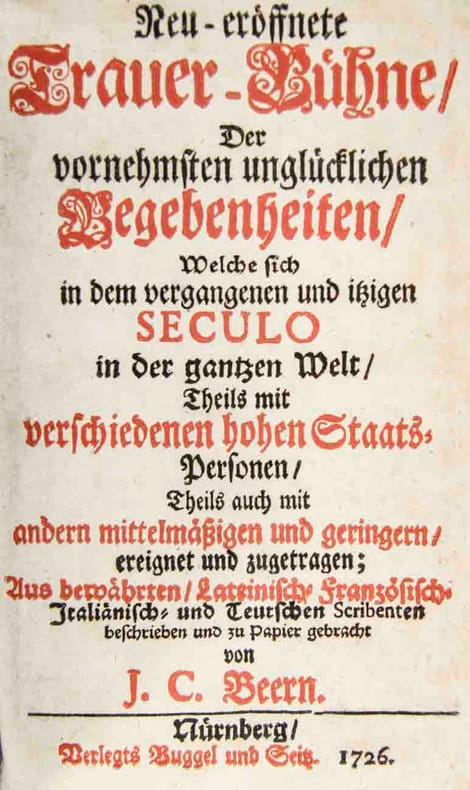 Neu-eröffnete
Trauer-Bühne/
Der
vornehmsten unglücklichen
Begebenheiten/
Welche sich
in dem vergangenen und itzigen
SECULO
in der gantzen Welt/
Theils mit
verschiedenen hohen Staats-
Personen/
Theils auch mit
andern mittelmäßigen und geringern/
ereignet und zugetragen;
Aus bewährten/ Lateinisch- Französisch-
Italiänisch- und Teutschen Scribenten
beschrieben und zu Papier gebracht
von
J. C. Beern.
Nürnberg/
Verlegts Buggel und Seitz. 1726.